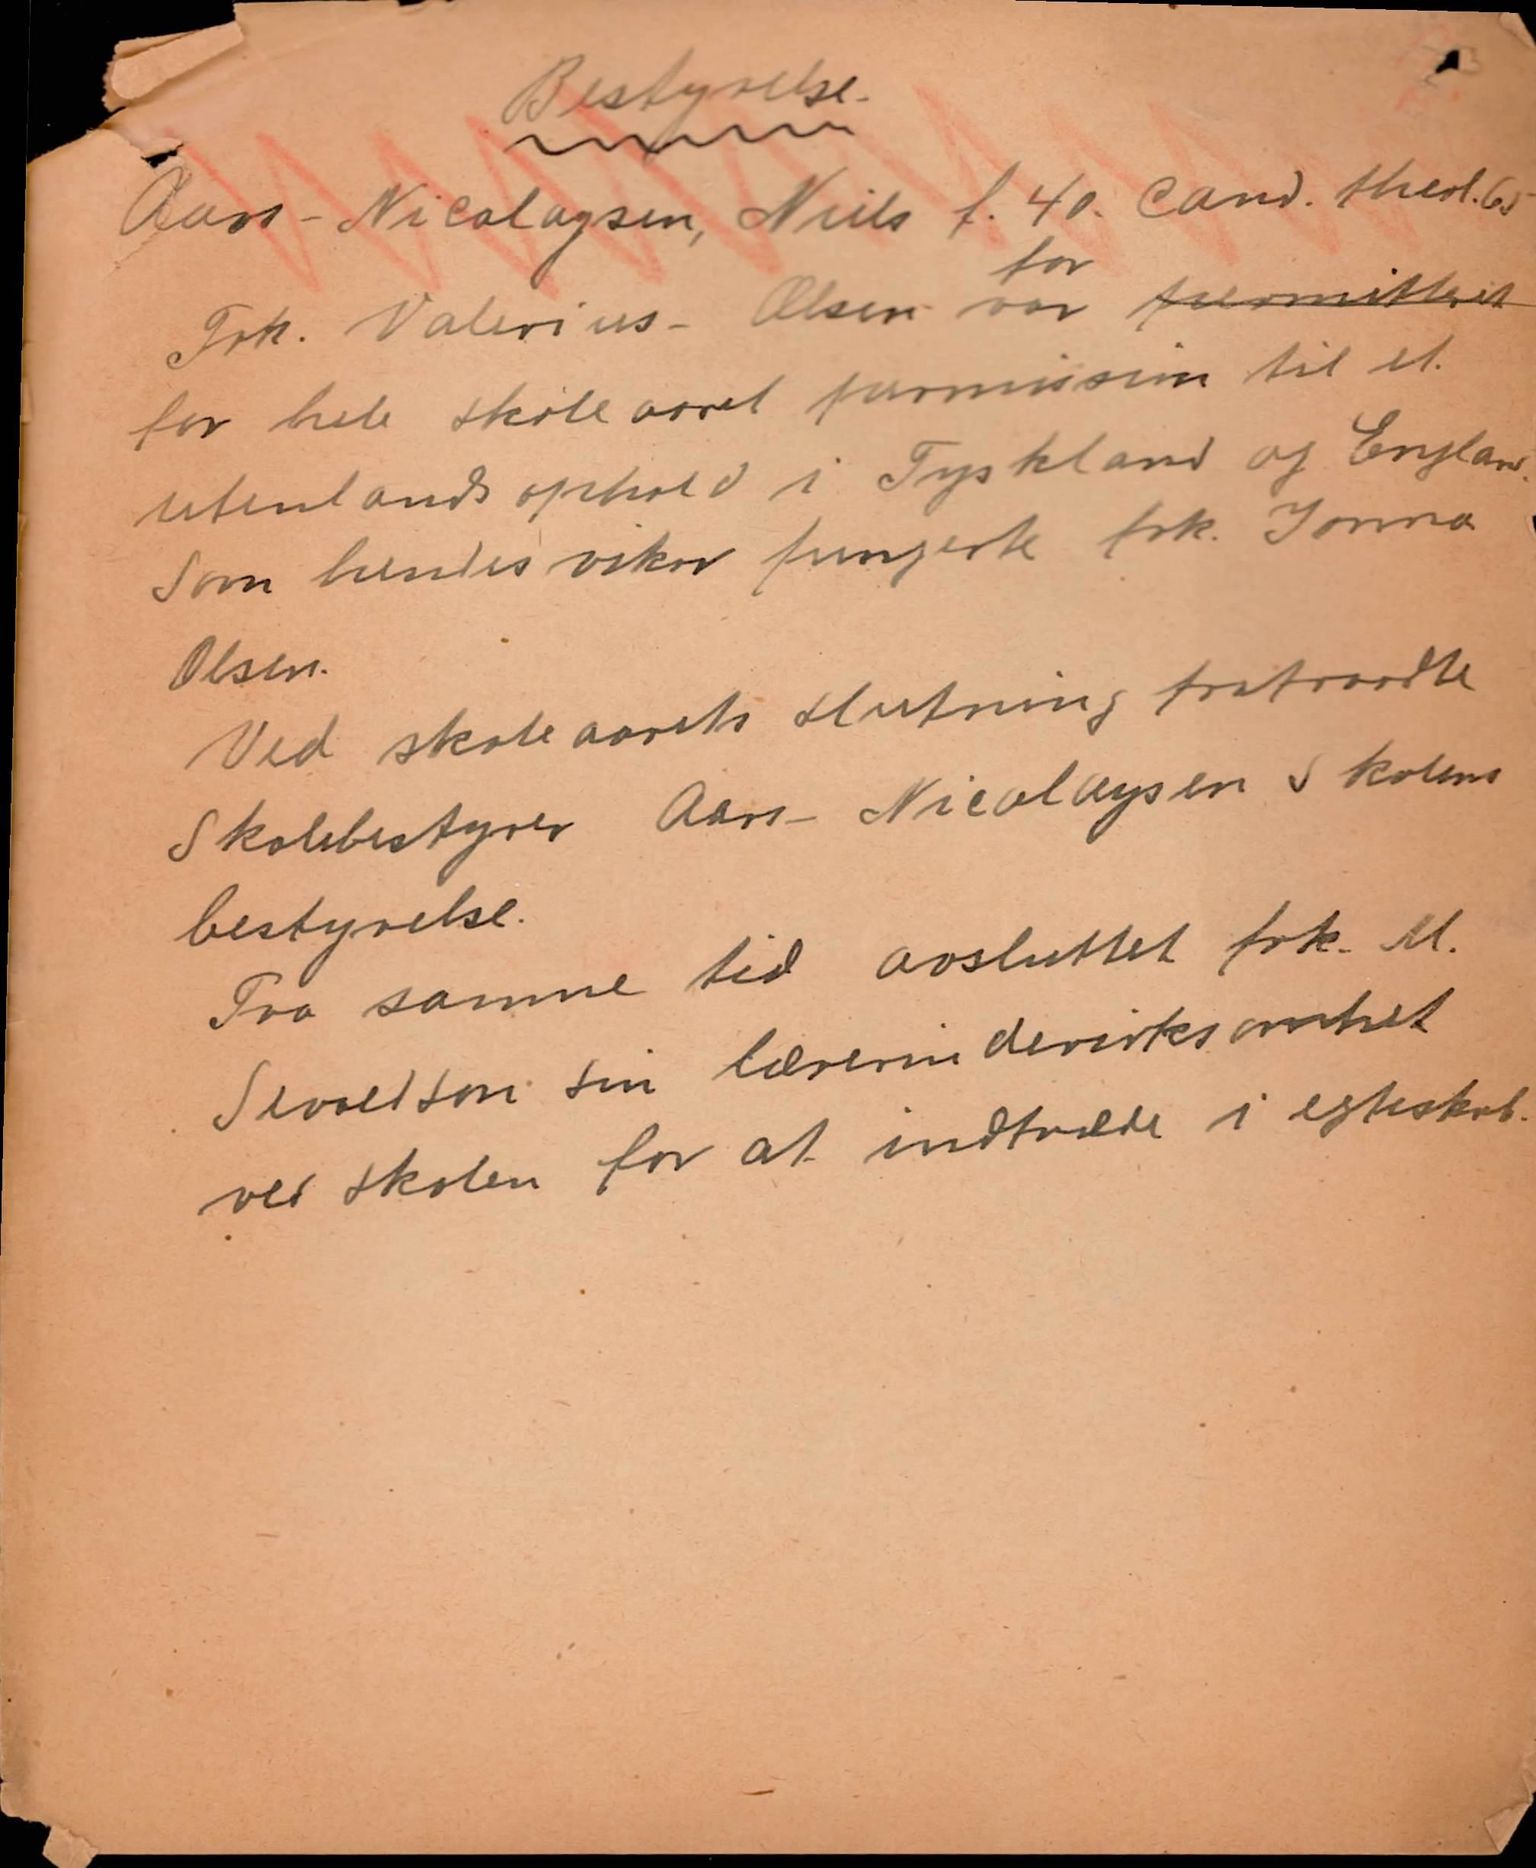 Bestyrelse.
Aars-Nicolaysen, Niels f. 40. Cand. theol. 65
for
Frk. Valerius-Olsen var permitteret
for hele skoleaaret permission til et
utenlandsophold i Tyskland og England.
Som hendes vikar fungerte frk. Jonna
Olsen.
Ved skoleaarets slutning fratraadte
Skolebestyrer Aars-Nicolaysen Skolens
bestyrelse.
Fra samme tid avsluttet frk. M.
Sivertson sin lærerindevirksomhet
ved skolen for at indtræde i egteskab.